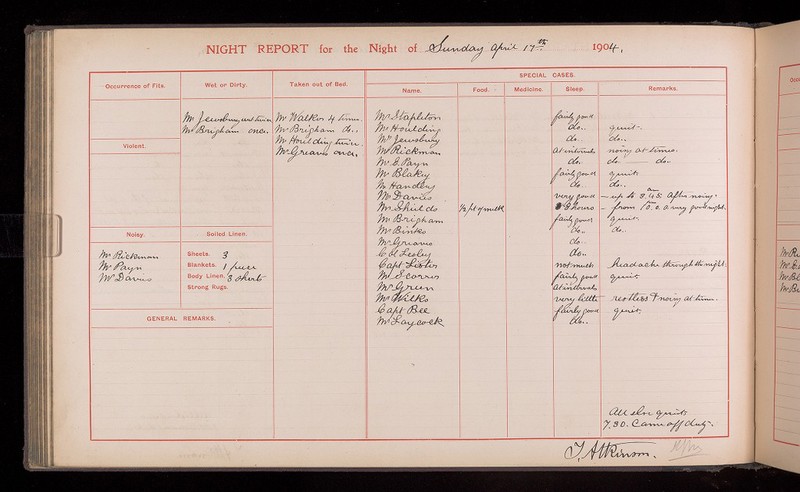 NIGHT REPORT for the Night of Sunday April 17th 1904.
SPECIAL CASES.
Occurrence of Fits.
Wet or Dirty.
Taken out of Bed.
Name.
Food.
Medicine.
Sleep.
Remarks.
Mr Jewsbury, wet twice
Mr Brigham once.
Mr Walker 4 times.
Mr Brigham do..
Mr Houlding twice.
Mr Greaves once,
Violent.
Noisy.
Mr Rickman
Mr Payn
Mr Davies
Soiled Linen.
Sheets. 3
Blankets. 1 piece
Body Linen. 3 shirts
Strong Rugs.
GENERAL REMARKS.
Mr Stapleton fairly good
Mr Houlding do.. quiet.
Mr Jewsbury do. do..
Mr Rickman at intervals noisy at times.
Mr E. Payn do. do. do.
Mr Blakey fairly good quiet
Mr Handley do.. do..
Mr Davies very good up to 3.45 am After noisy.
Mr Shields ½ pt of milk 8 hours from 10.0. a very good night.
Mr Brigham fairly good quiet.
Mr Binks do.. do..
Mr Greaves do..
Col Lesley do..
Capt Lister not much headache through the night.
Mr fairly good quiet
Mr Green at intervals
Mr Wilks very little restless & noisy at times.
Capt Bee fairly good quiet.
Mr Laycock do..
All else quiet
7.30. Came off duty.
T. Atkinson.